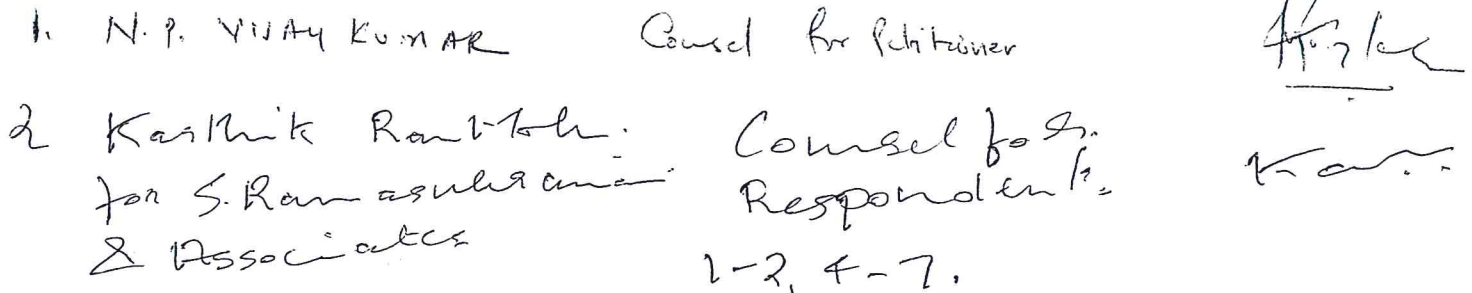 1. N.P. VIJAY KUMAR Counsel for Petitioner
2 Karthik
for S. Ramasubramanian
& Associates
Counsel for
Respondents
1-2, 4-7.